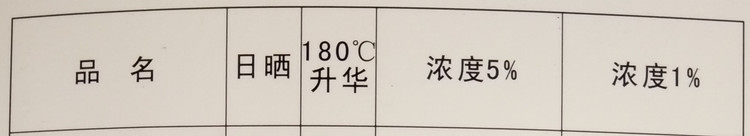 品 名
日晒
180℃
升华
浓度5%
浓度1%